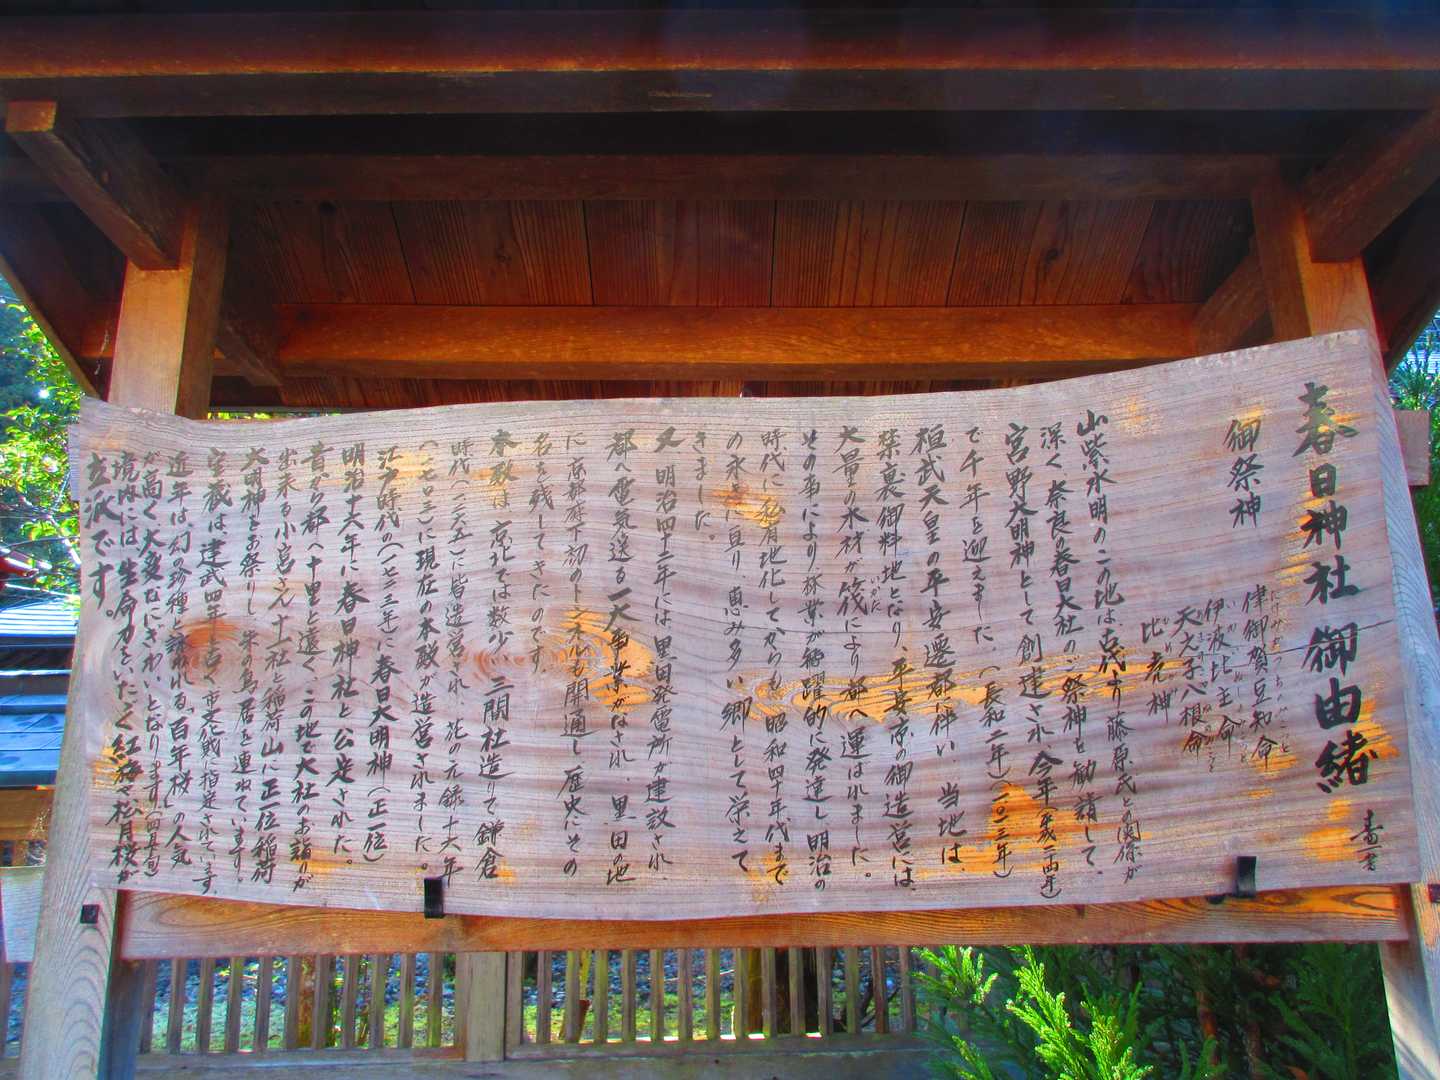 春日神社 御由緒
御祭神
津御賀豆知命
伊波比主命
天之子八根命
比売神
山紫水明のこの地は、古代より藤原氏との関係が
深く、奈良の春日大社のご祭神を勧請して、
宮野大明神として創建され 今年(平成二十四年)
で千年を迎えました。(長和二年)(一〇一三年)
桓武天皇の平安遷都に伴い、当地は、
禁裏御料地となり、平安京の御造営には、
大量の木材が筏により都へ運ばれました。
その事により、林業が飛躍的に発達し明治の
時代に私有地化してからも、昭和四十年代まで
の永きに亘り、恵み多い郷として栄えて
きました。
又 明治四十二年には黒田発電所が建設され、
都へ電気送る一大事業がなされ、黒田の地
に京都府下初のトンネルも開通し歴史にその
名を残してきたのです。
本殿は 京北では数少い三間社造りで鎌倉
時代(一二六五)に皆造営され 花の元録十六年
(一七〇三)に現在の本殿が造営されました。
江戸時代の(一七三三年)に春日大明神(正一位)
明治十六年に春日神社と公定された。
昔から都へ十里と遠く、この地で大社のお詣りが
出来る小宮さん十一社と稲荷山に正一位稲荷
大明神をお祭りし 朱の鳥居を連ねています。
宝蔵は建武四年と古く市文化戝に指定されています。
近年は、幻の珍種と謳われる「百年桜」の人気
が高く、大変なにぎわいとなります(四月旬)
境内には 生命力をいたゞく紅梅や松月桜が
立派です。